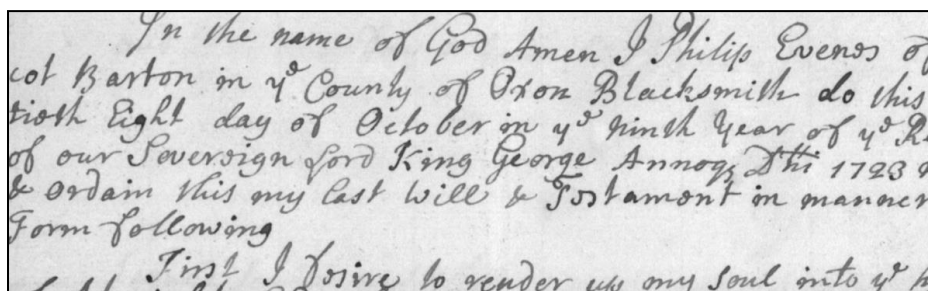 In the name of God Amen I Philip Evenes of
cot Barton in yᵉ County of Oxon Blacksmith do this
tieth Eight day of October in yᵉ ninth Year of yᵉ
of our Sovereign Lord King George Annoq, Dñi 1723
& Ordain this my last Will & Testament in manner
Form following
First I Desire to render up my soul into yᵉ